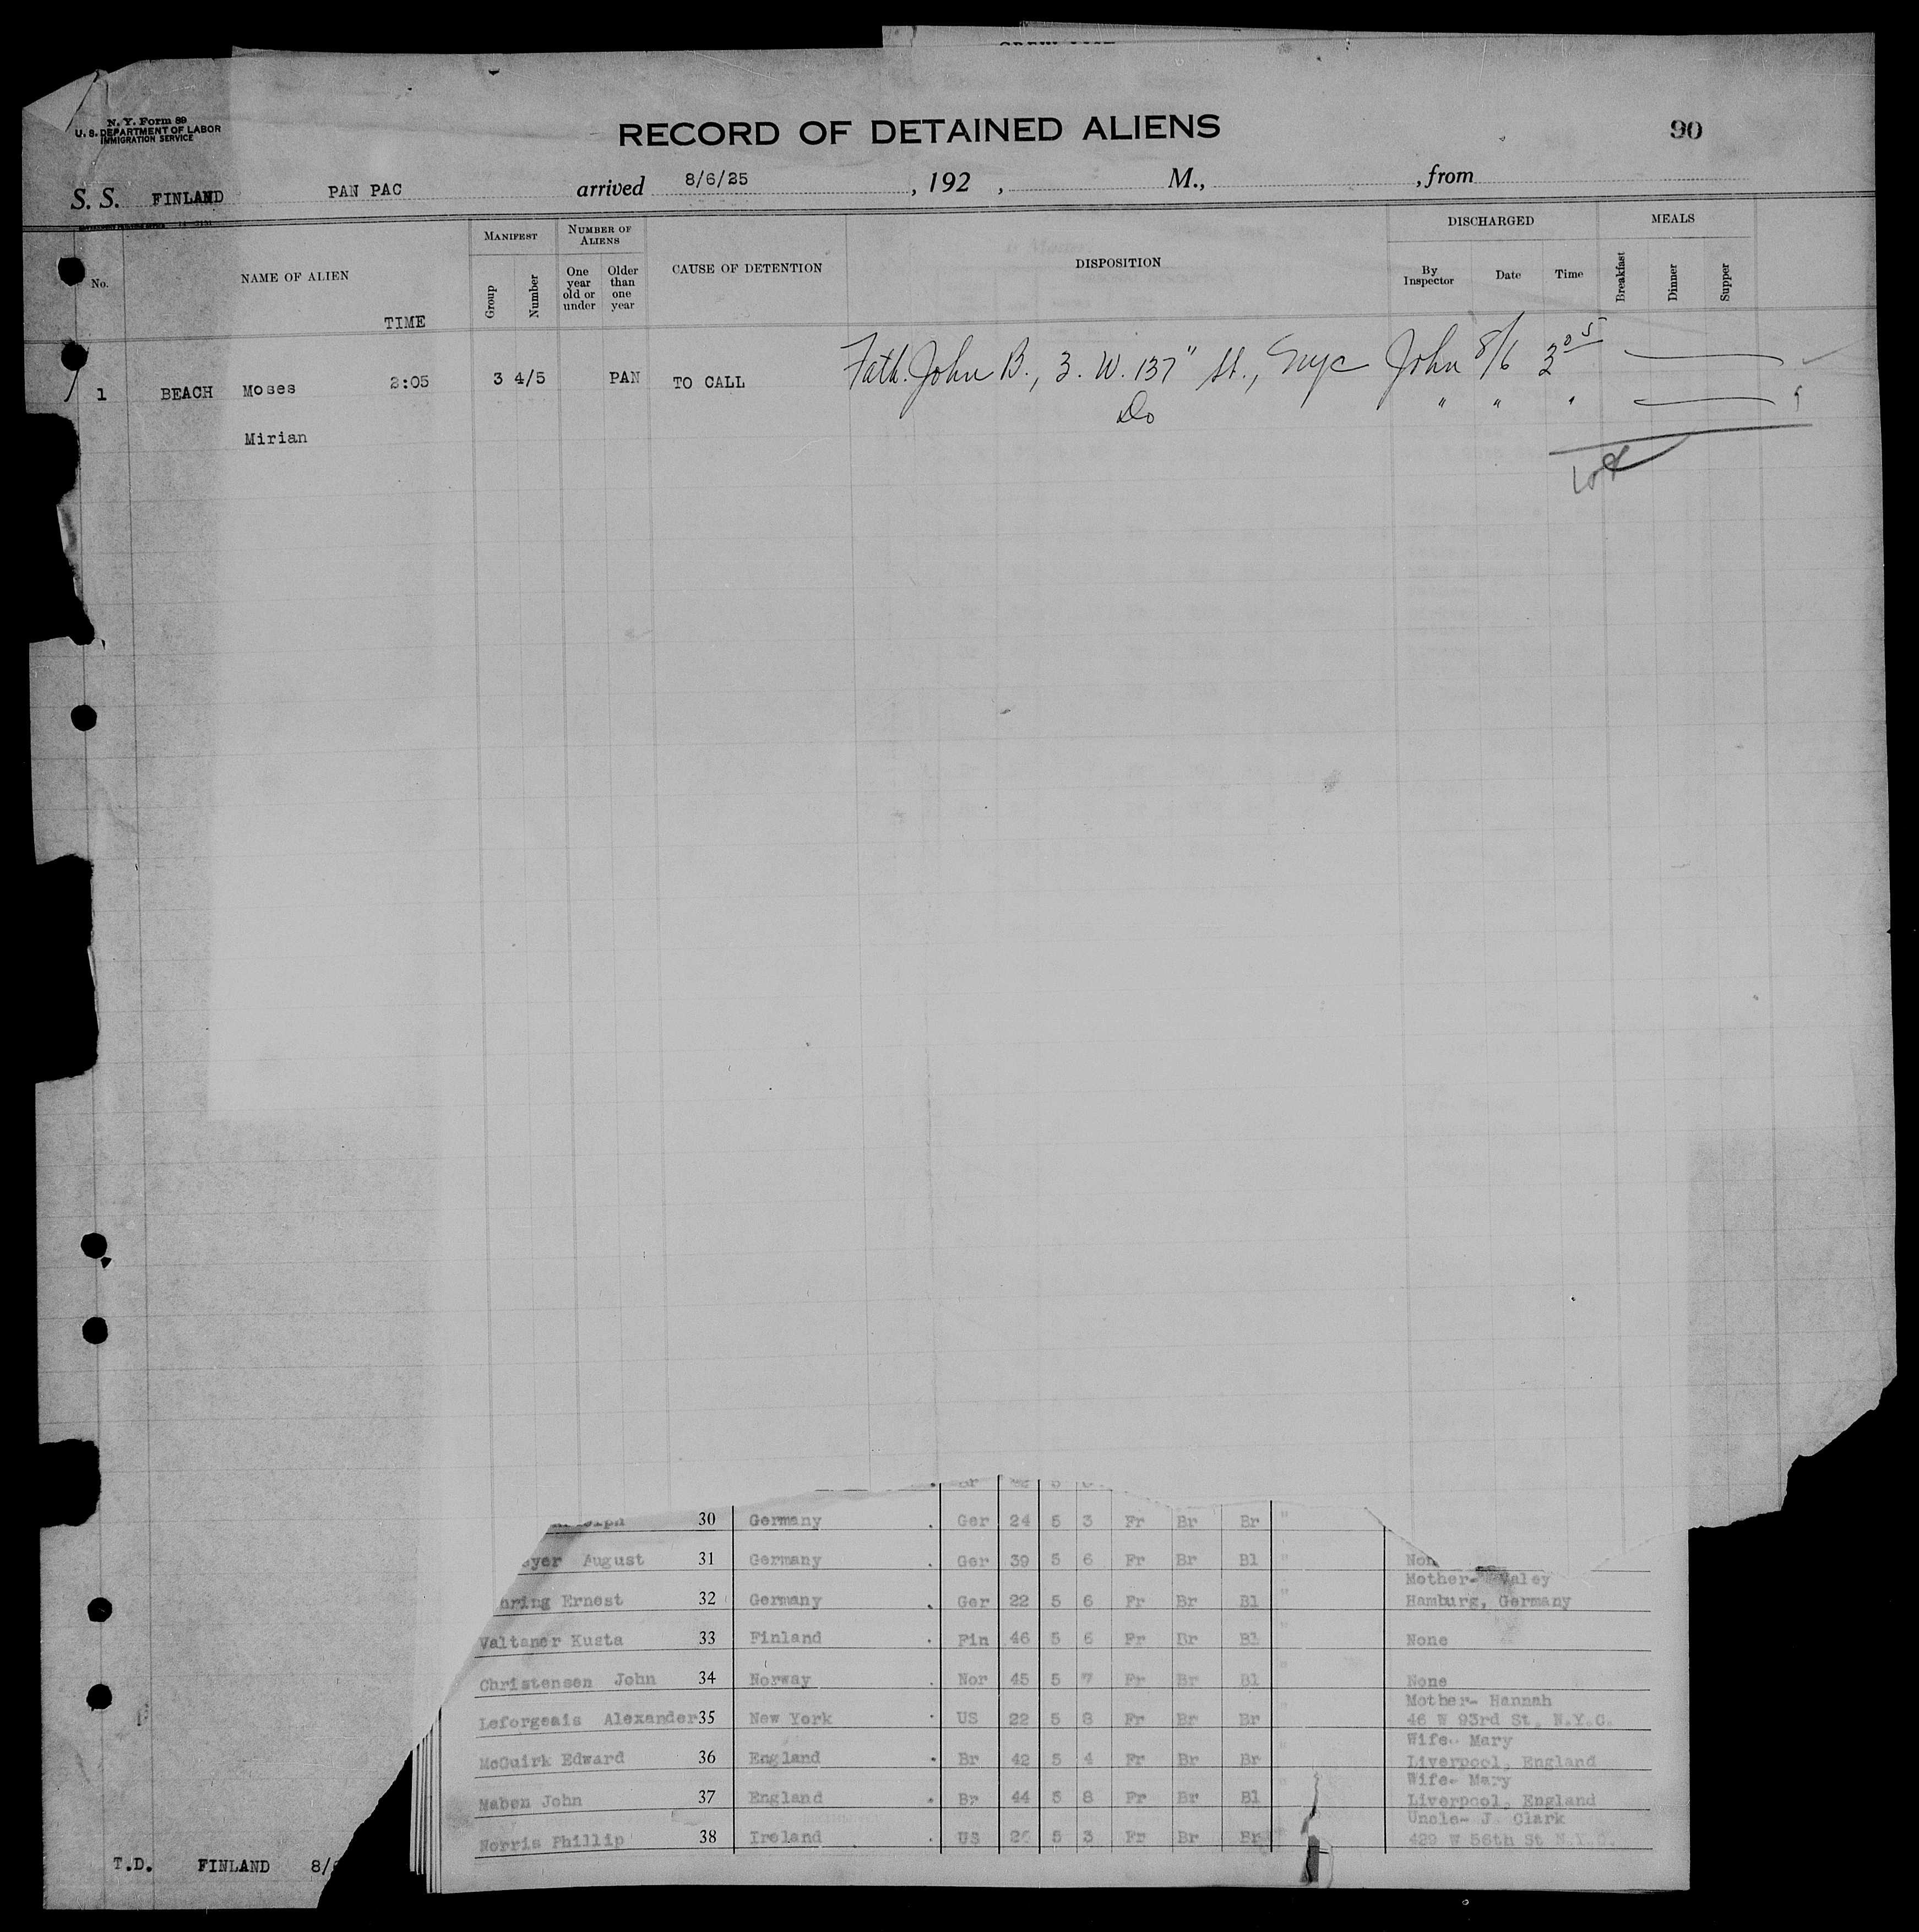 N. Y. Form 89
U. S. DEPARTMENT OF LABOR
IMMIGRATION SERVICE
RECORD OF DETAINED ALIENS
90
S. S. FINLAND PAN PAC arrived 8/6/25, 192 , M., , from
No. NAME OF ALIEN TIME MANIFEST Group Number NUMBER OF ALIENS One year old or under Older than one year CAUSE OF DETENTION DISPOSITION DISCHARGED By Inspector Date Time MEALS Breakfast Dinner Supper
1 BEACH Moses 2:05 3 4/5 PAN TO CALL Fath. John B., 3. W. 137" St., Nyc John 8/6 3 05
Mirian Do " " "
30 Germany . Ger 24 5 3 Fr Br Br "
August 31 Germany . Ger 39 5 6 Fr Br Bl "
Mother-
Ernest 32 Germany . Ger 22 5 6 Fr Br Bl " Hamburg, Germany
Valtaner Kusta 33 Finland . Fin 46 5 6 Fr Br Bl " None
Christensen John 34 Norway . Nor 45 5 7 Fr Br Bl " None
Mother- Hannah
Leforgeais Alexander 35 New York . US 22 5 8 Fr Br Br " 46 W 93rd St, N.Y.C.
Wife- Mary
McGuirk Edward 36 England . Br 42 5 4 Fr Br Br " Liverpool, England
Wife- Mary
Maben John 37 England . Br 44 5 8 Fr Br Bl " Liverpool, England
Uncle- J. Clark
Norris Phillip 38 Ireland . US 5 3 Fr Br Br 429 W 56th St N.Y.C.
T.D. FINLAND